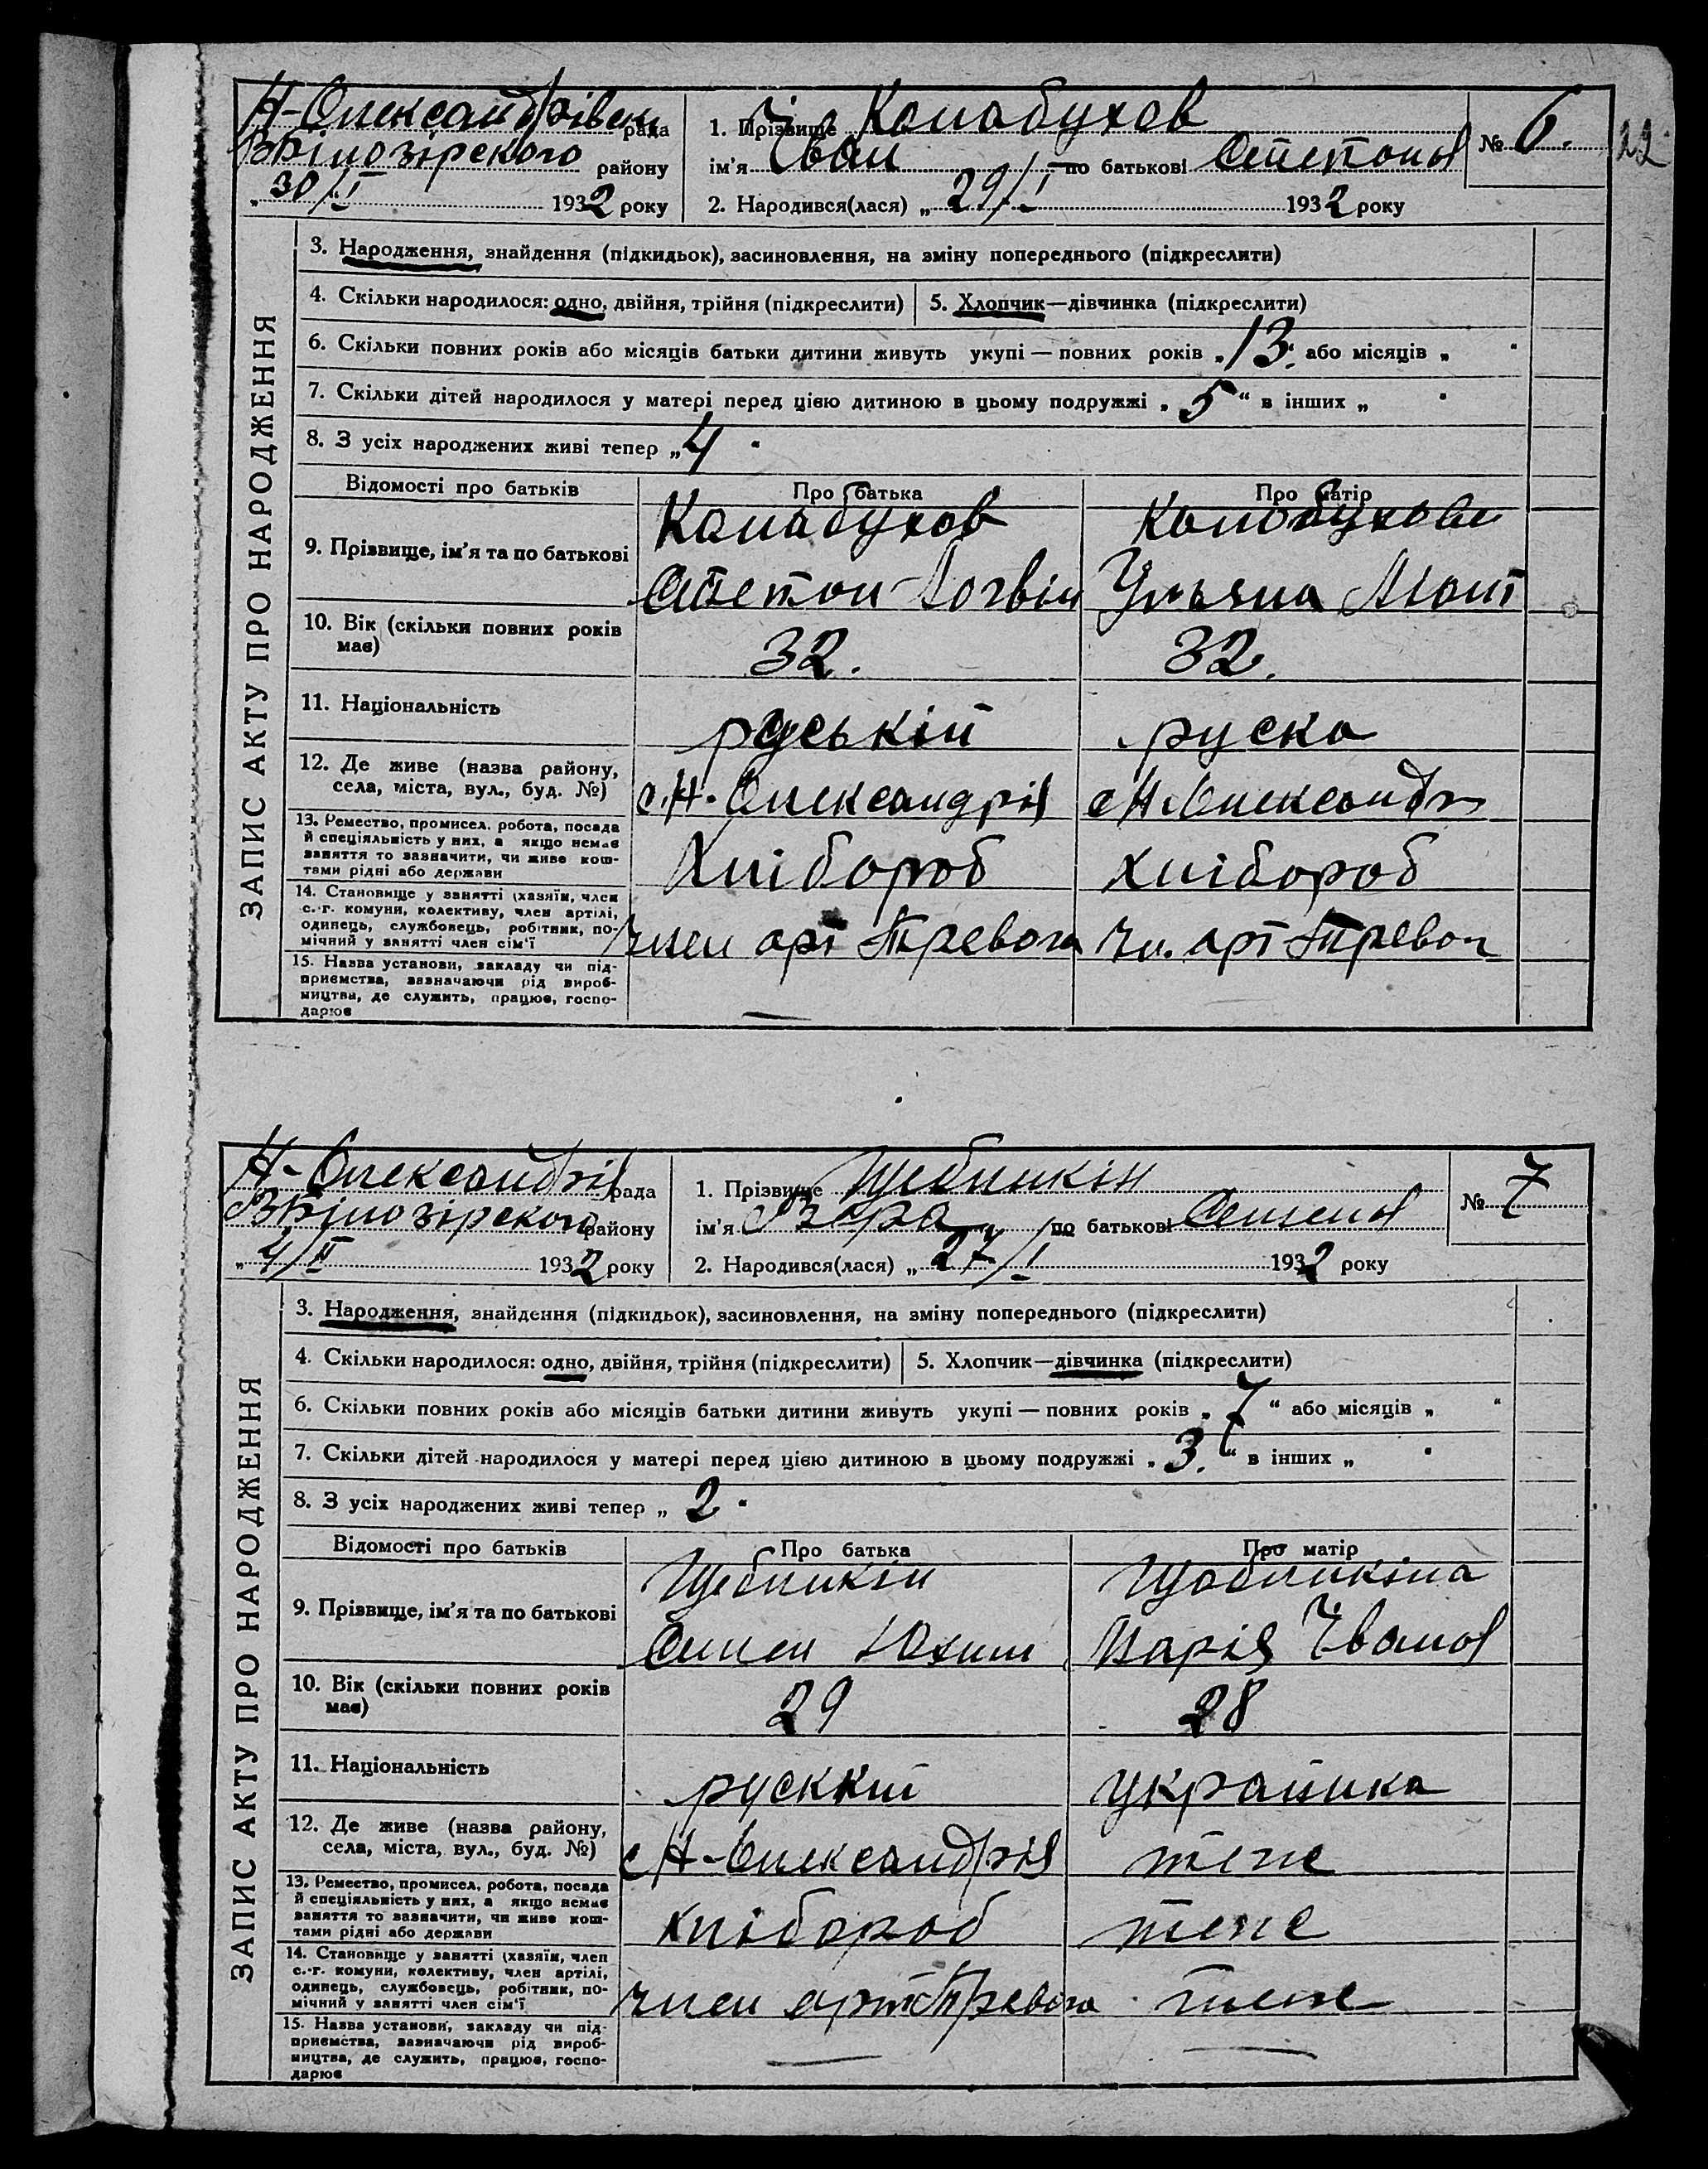 Н-Олександрівськ рада
ВБілозірского району
„30/I 1932 року
1. Прізвище Колабухов
ім'я Іван по батькові Степанов
2. Народився(лася) „29/I 1932 року
№ 6.
22
ЗАПИС АКТУ ПРО НАРОДЖЕННЯ
3. Народження, знайдення (підкидьок), засиновлення, на зміну попереднього (підкреслити)
4. Скільки народилося: одно, двійня, трійня (підкреслити) 5. Хлопчик—дівчинка (підкреслити)
6. Скільки повних років або місяців батьки дитини живуть укупі — повних років „13. або місяців „
7. Скільки дітей народилося у матері перед цією дитиною в цьому подружжі „5“ в інших „
8. З усіх народжених живі тепер „4
Відомості про батьків Про батька Про матір
9. Прізвище, ім'я та по батькові
Колабухов Колобухова
Степан Логвін Ульяна
10. Вік (скільки повних років
має) 32. 32.
11. Національність руський руска
12. Де живе (назва району,
села, міста, вул., буд. №) с.Н-Олександрія с Н Олександр
13. Ремество, промисел. робота, посада
й спеціяльність у них, а якщо немає
заняття то зазначити, чи живе кош-
тами рідні або держави
Хлібороб хлібороб
14. Становище у занятті (хазяїн, член
с.-г. комуни, колективу, член артілі,
одинець, службовець, робітник, по-
мічний у занятті член сім'ї
член арт Тревога чл. арт Тревог
15. Назва установи, закладу чи під-
приємства, зазначаючи рід вироб-
ництва, де служить, працює, госпо-
дарює
—
Н-Олександрія рада
ВБілозірского району
„4/II 1932 року
1. Прізвище Щебликін
ім'я Вера по батькові Семенов
2. Народився(лася) „27/I 1932 року
№ 7
ЗАПИС АКТУ ПРО НАРОДЖЕННЯ
3. Народження, знайдення (підкидьок), засиновлення, на зміну попереднього (підкреслити)
4. Скільки народилося: одно, двійня, трійня (підкреслити) 5. Хлопчик—дівчинка (підкреслити)
6. Скільки повних років або місяців батьки дитини живуть укупі — повних років „7“ або місяців „ “
7. Скільки дітей народилося у матері перед цією дитиною в цьому подружжі „3.“ в інших „
8. З усіх народжених живі тепер „2
Відомості про батьків Про батька Про матір
9. Прізвище, ім'я та по батькові
Щебликін Щабликіна
Семен Юхим Марія Іванов
10. Вік (скільки повних років
має) 29 28
11. Національність русккий украинка
12. Де живе (назва району,
села, міста, вул., буд. №) с Н-Олександрія теже
13. Ремество, промисел, робота, посада
й спеціяльність у них, а якщо немає
заняття то зазначити, чи живе кош-
тами рідні або держави
хлібороб теже
14. Становище у занятті (хазяїн, член
с.-г. комуни, колективу, член артілі,
одинець, службовець, робітник, по-
мічний у занятті член сім'ї
член арт Тревога теже
15. Назва установи, закладу чи під-
приємства, зазначаючи рід вироб-
ництва, де служить, працює, госпо-
дарює
— —